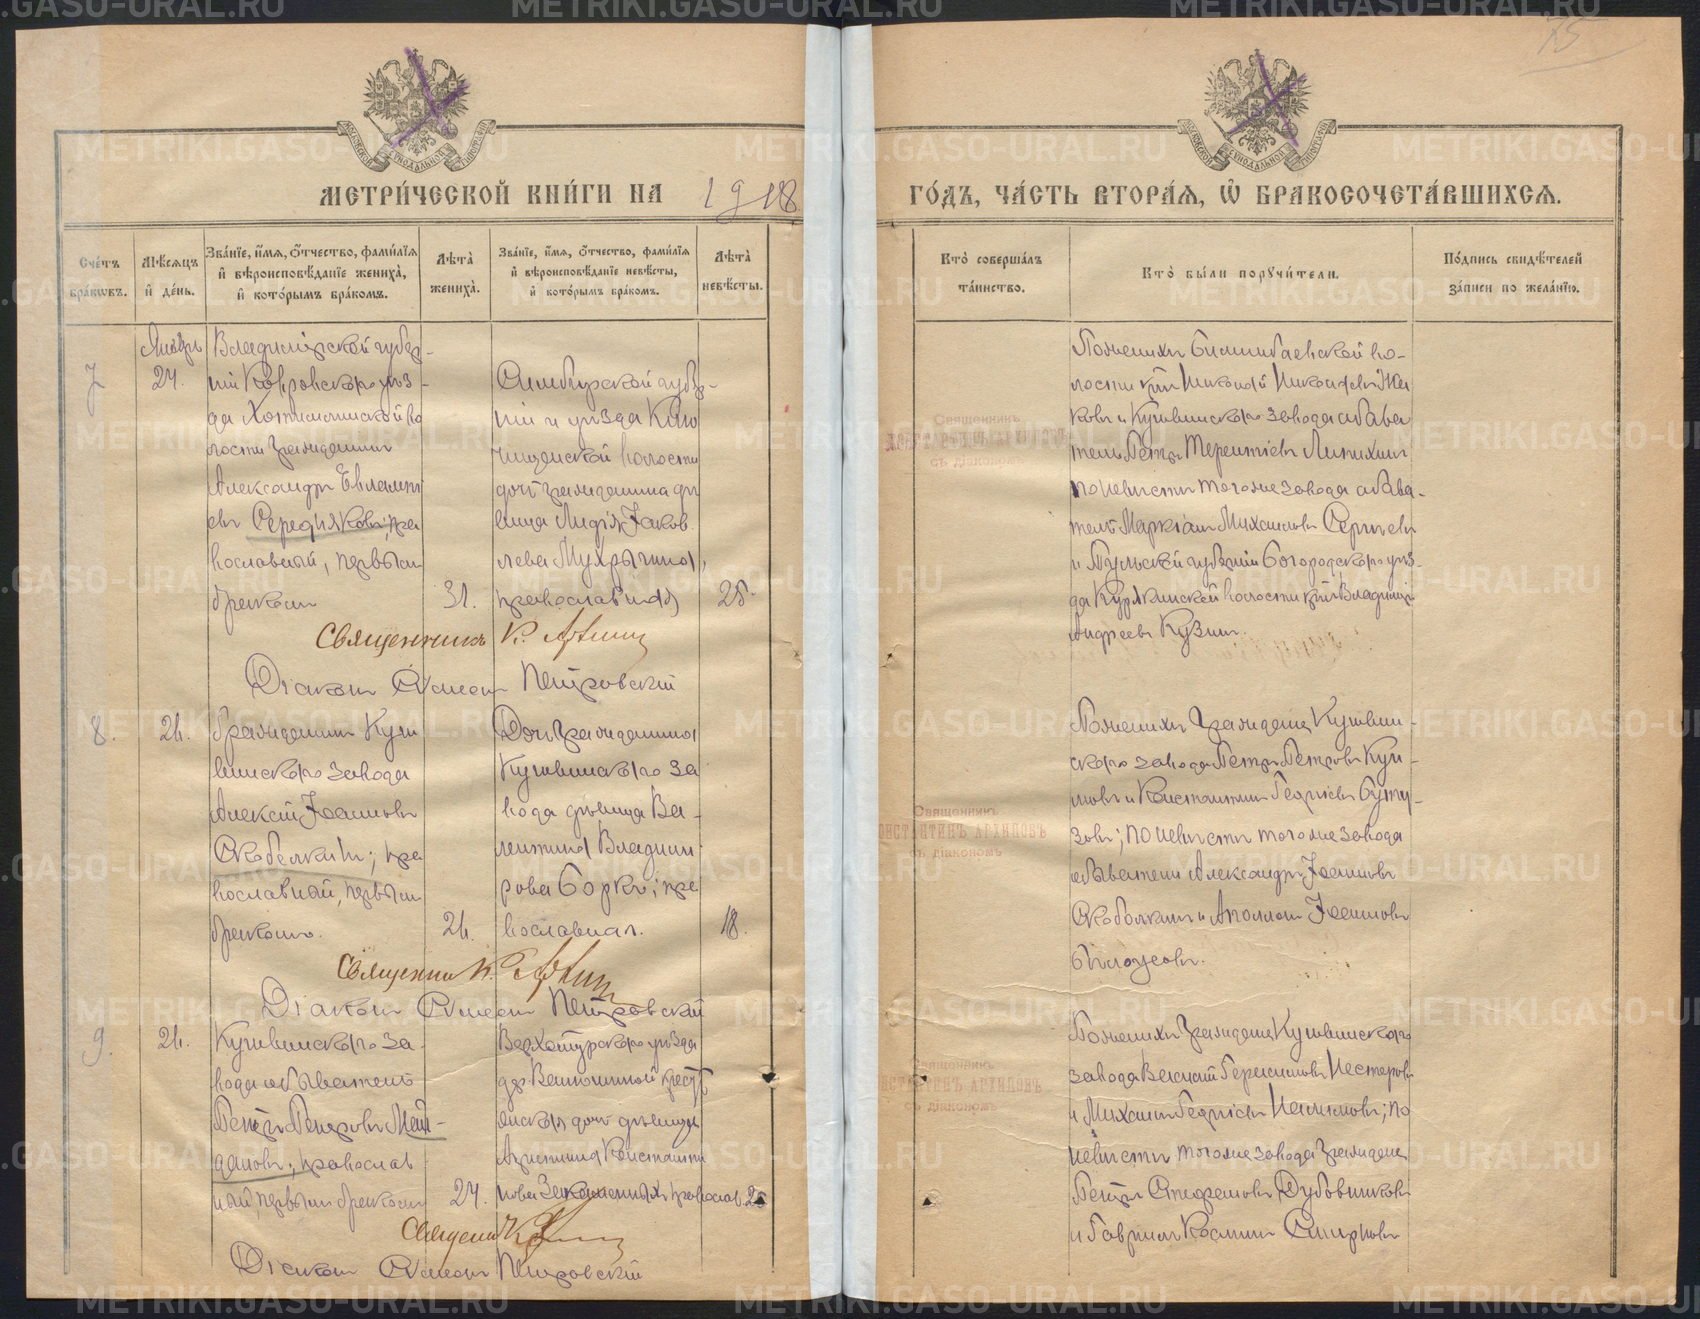 75
МЕТРИ́ЧЕСКОЙ КНИ́ГИ НА 1918
ГО́ДЪ, ЧА́СТЬ ВТОРА́Я, Ѽ БРАКОСОЧЕТА́ВШИХСЯ.
Сче́тъ бра́ковъ.
Мѣ́сяцъ и҆ де́нь.
Зва́нїе, и҆́мя, ѻ҆́тчество, фами́лїя и҆ вѣроисповѣ́данїе жениха̀, и҆ кото́рымъ бра́комъ.
Лѣта̀ жениха̀.
Зва́нїе, и҆́мя, ѻ҆́тчество, фами́лїя и҆ вѣроисповѣ́данїе невѣ́сты, и҆ кото́рымъ бра́комъ.
Лѣта̀ невѣ́сты.
Кто̀ соверша́лъ та́инство.
Кто̀ бы́ли поручи́тели.
По́дпись свидѣ́телей за́писи по жела́нїю.
7
Январь
24.
Владимірской губер-
ніи Ковровскаго уѣз-
да
волости гражданинъ
Александръ Евлампі
евъ Середняковъ; пра
вославный, первымъ
бракомъ
31.
Симбирской губер-
ніи и уѣзда
волости
дочь гражданина дѣ
вица Лидія Іаков
лева Мухрыгина,
православная
25.
Священникъ
КОНСТАНТИНЪ АРХИПОВЪ
съ діакономъ
По женихѣ Билимбаевской во-
лости кр. Николай Николаевъ
и Кушвинскаго завода обыва
тель Петръ Терентіевъ
по невѣстѣ того же завода обыва-
тель Маркіанъ Михаиловъ Сергѣевъ
и Тульской губерніи Богородскаго уѣз-
да волости кр. Владиміръ
Андреевъ Кузинъ.
Священникъ К.
Діаконъ Петровскій
8.
24.
Гражданинъ Куш
винскаго завода
Алексій Іоанновъ
Скоболкинъ; пра
вославный, первымъ
бракомъ.
24.
Дочь гражданина
Кушвинскаго за
вода дѣвица Ва-
лентина Владими
рова Борк; пра
вославная.
18.
Священникъ
КОНСТАНТИНЪ АРХИПОВЪ
съ діакономъ
По женихѣ граждане Кушвин-
скаго завода Петръ Петровъ
и Константинъ Георгіевъ
по невѣстѣ того же завода
обыватели Александръ Іоанновъ
Скоболкинъ и Аполлонъ Іоанновъ
Бѣлоусовъ.
Священник К.
Діаконъ Петровскій
9.
24.
Кушвинскаго за-
вода обыватель
Петръ Петровъ Мей-
дановъ, православ
ный, первымъ бракомъ
24.
Верхотурскаго уѣзда
дер. крест
янская дочь дѣвица
Христина Константи
нова православ. 25
Священникъ
КОНСТАНТИНЪ АРХИПОВЪ
съ діакономъ
По женихѣ граждане Кушвинскаго
завода Герасимовъ Нестеровъ
и Михаилъ Георгіевъ по
невѣстѣ того же завода граждане
Петръ Стефановъ Дубовниковъ
и Гавріилъ Космин Смирновъ
Священ К.
Діаконъ Петровскій
METRIKI.GASO-URAL.RU